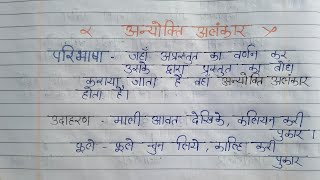 अन्योक्ति अलंकार
परिभाषा - जहाँ अप्रस्तुत का वर्णन कर
उसके द्वारा प्रस्तुत का बोध
कराया जाता है वहां अन्योक्ति अलंकार
होता है।
उदाहरण - माली आवत देखिके, कलियन करी
पुकार।
फूले - फूले चुन लिये, काल्हि करी
पुकार